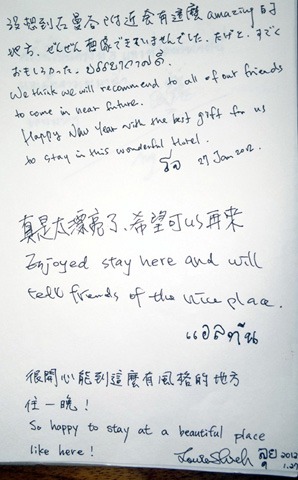 沒想到在曼谷附近會有這麼 amazing 的
地方、ぜんぜん想像できませんでした。だけど、すごく
おもしろかった。บรรยากาศดี.
We think we will recommend to all of our friends
to come in near future.
Happy New Year with the best gift for us
to stay in this wonderful Hotel.
27 Jan 2012.
真是太漂亮了、希望可以再來
Enjoyed stay here and will
tell friends of the nice place.
แอลทีน
很開心能到這麼有風格的地方
住一晚！
So happy to stay at a beautiful place
like here!
2012
1.27